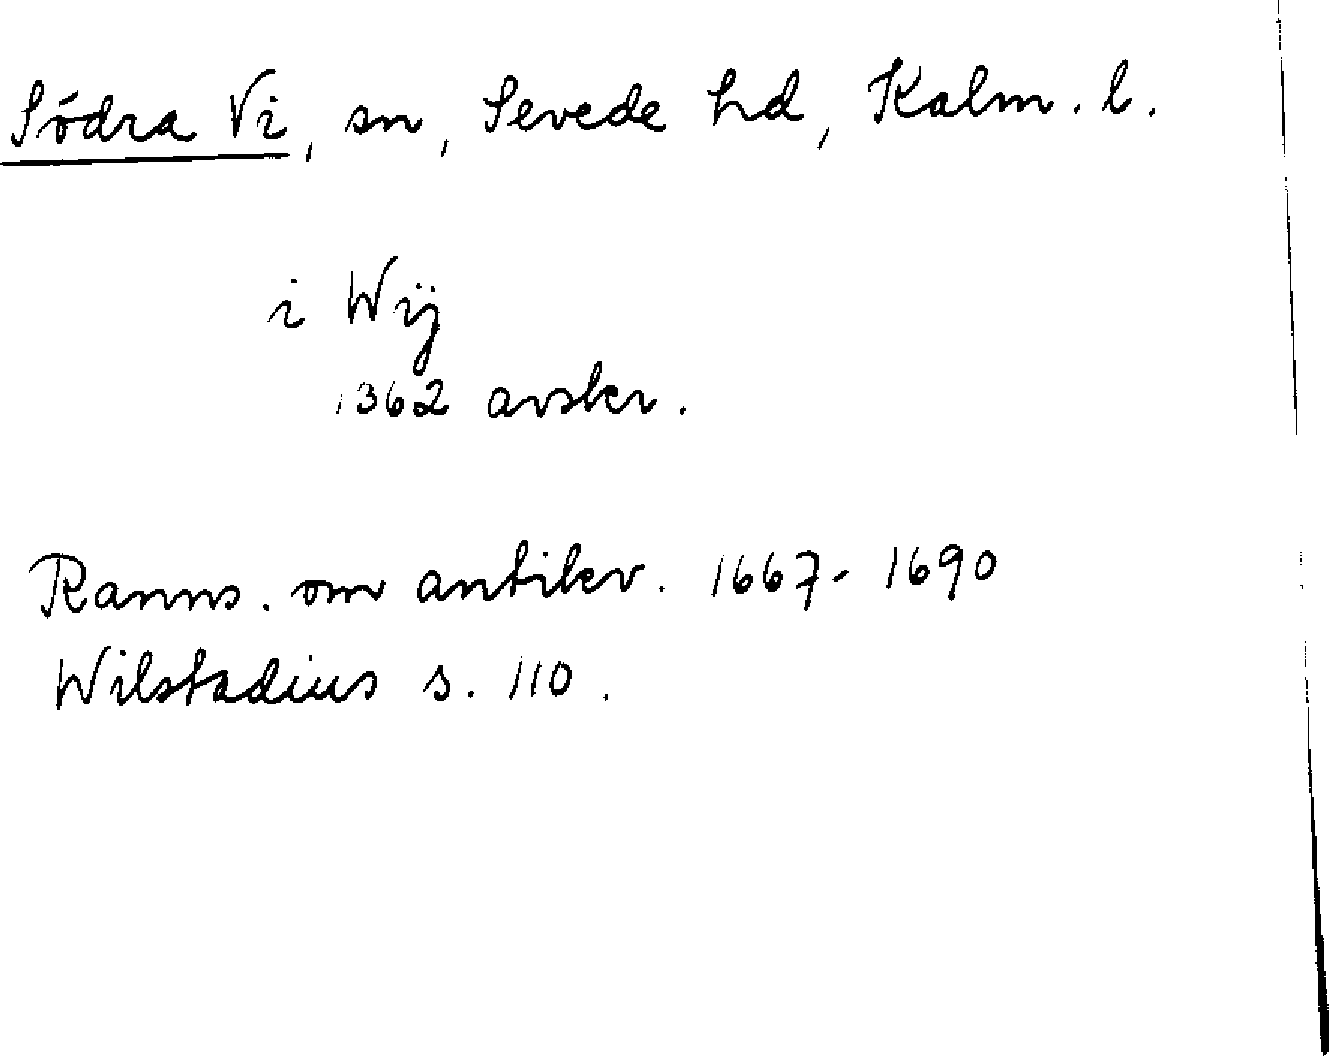 Södra Vi, sn, Sevede hd, Kalm. l.
i Wij
1362 avskr.
Ranns. om antikv. 1667-1690
Wilstadius s. 110.